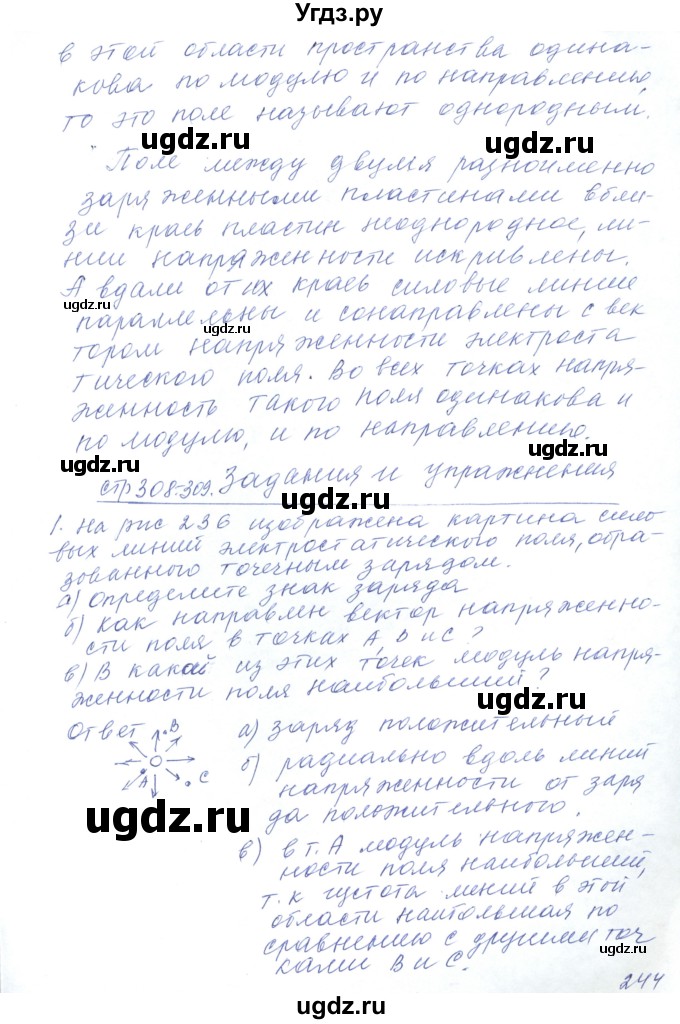 Угдз.ру
в этой области пространства одина-
кова по модулю и по направлению,
то это поле называют однородным.
ugdz.ru
Поле между двумя разноименно
заряженными пластинами вбли-
зи краев пластин неоднородное, ли-
нии напряженности искривлены.
ugdz.ru
А вдали от их краев силовые линие
ugdz.ru
параллельны и сонаправлены с век
тором напряженности электроста
тического поля. Во всех точках напря-
женность такого поля одинакова и
ugdz.ru
по модулю, и по направлению.
ugdz.ru
стр 308-309. Задания и упражнения
1. На рис 236 изображена картина сило
вых линий электростатического поля, обра-
зованного точечным зарядом.
ugdz.ru
а) Определите знак заряда
б) Как направлен вектор напряженно-
сти поля в точках А, В и С?
ugdz.ru
в) В какой из этих точек модуль напря-
женности поля наибольший?
Ответ
В
А
С
а) заряд положительный
б) радиально вдоль линий
напряженности от заря
да положительного.
ugdz.ru
ugdz.ru
в) в т. А модуль напряжен-
ности поля наибольший,
т. к густота линий в этой
области наибольшая по
сравнению с другими точ
ками В и С.
ugdz.ru
ugdz.ru
244
ugdz.ru